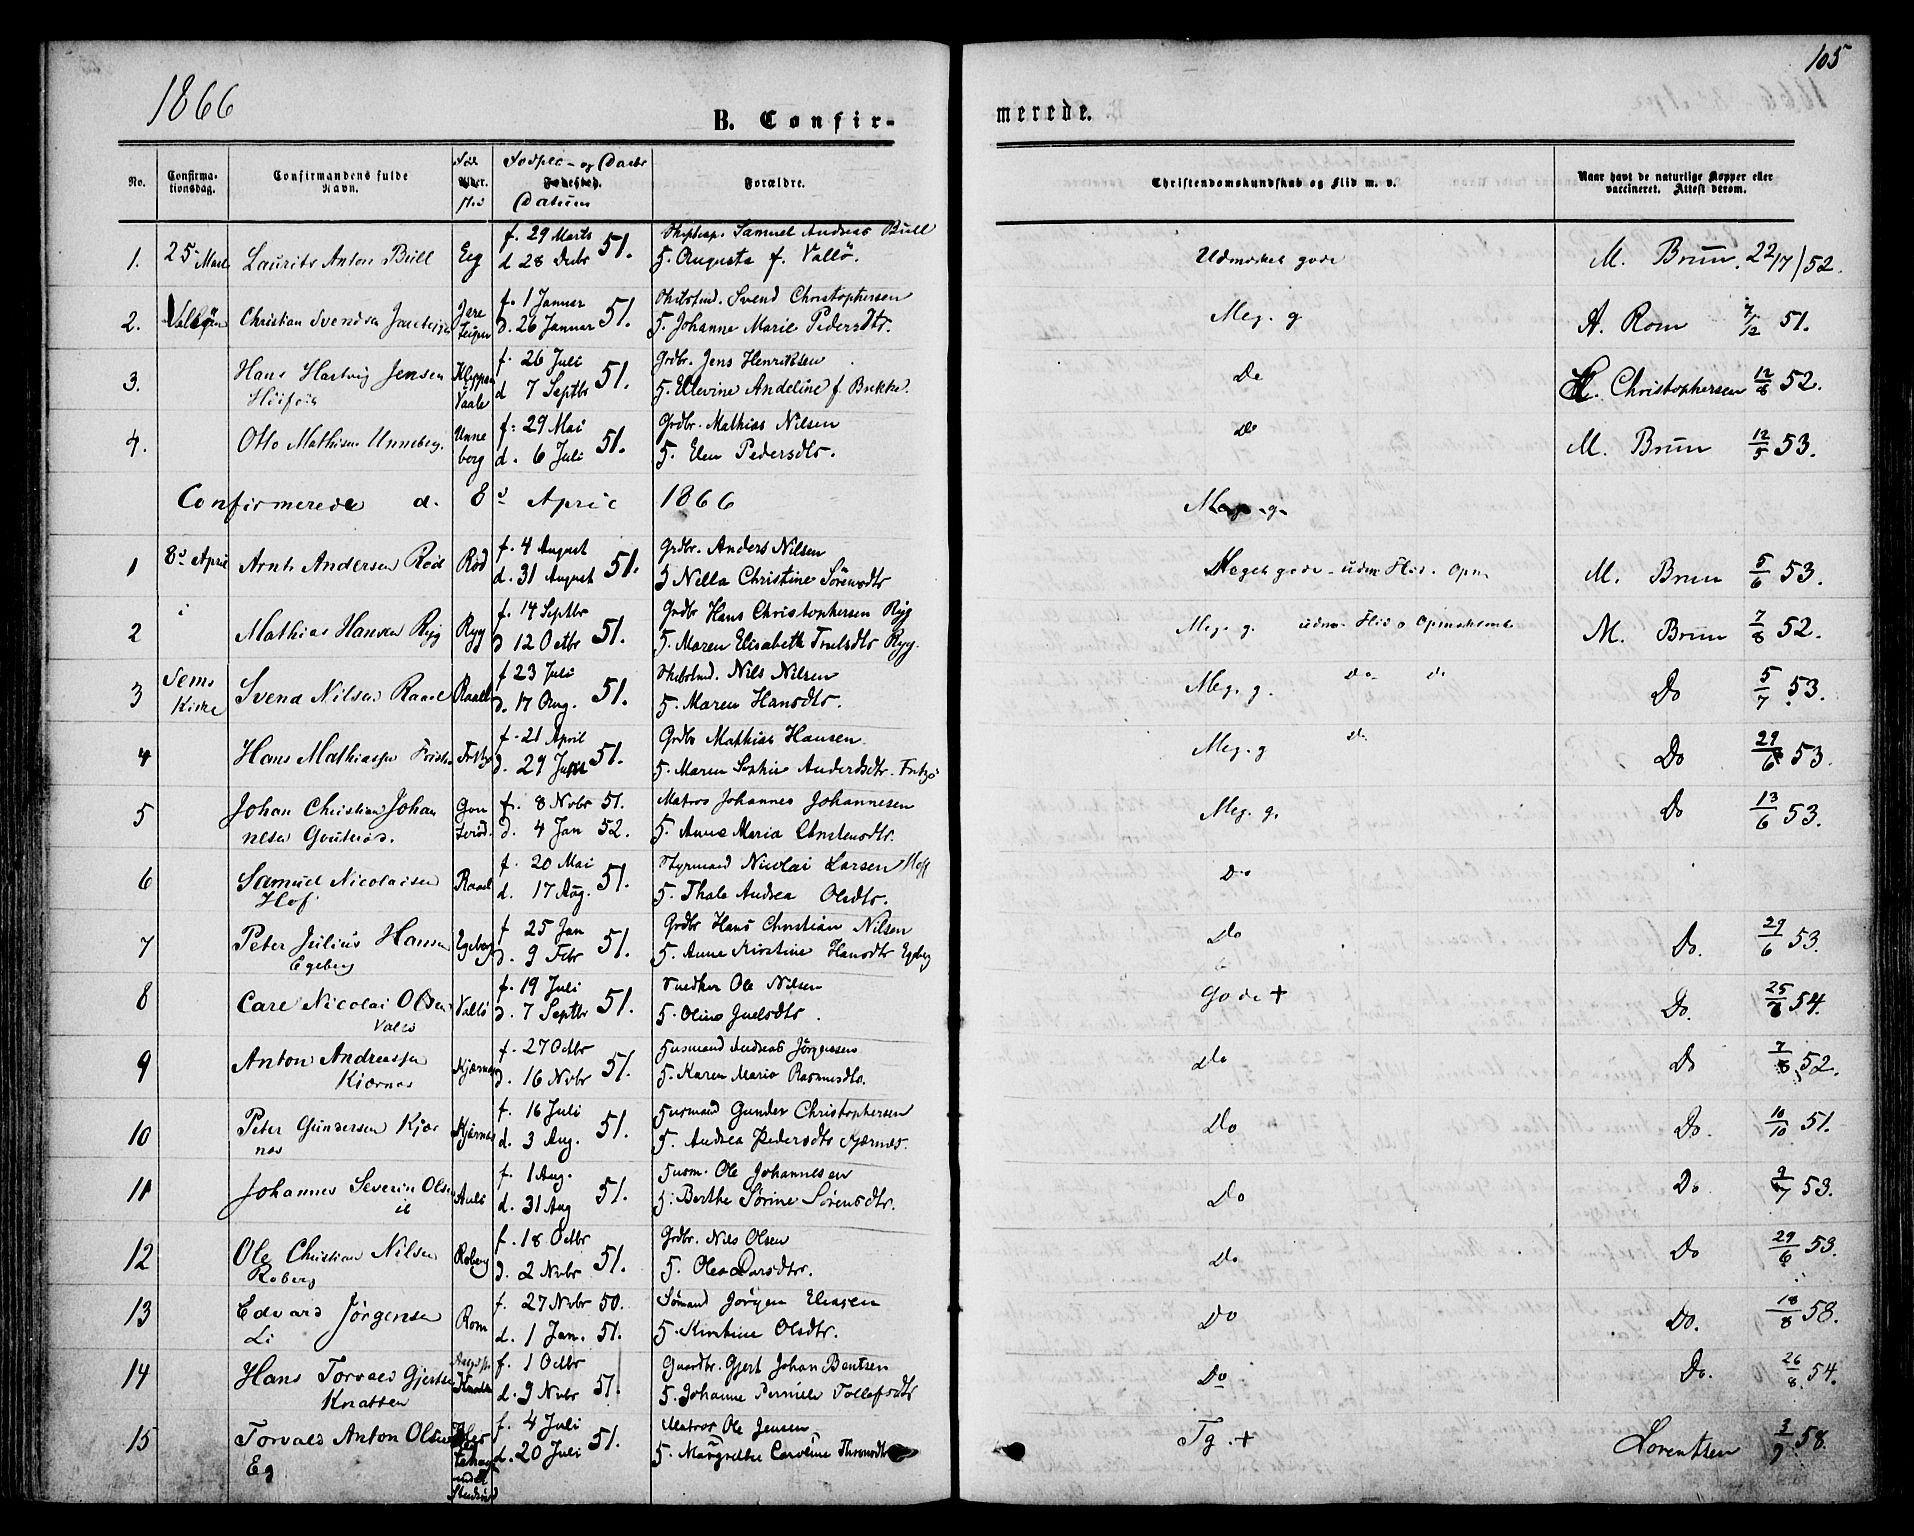 1866
105
B. Confir-
merede.
No.
Confirma-
tionsdag.
Confirmandens fulde
Navn.
Datum
Forældre.
Christendomskundskab og Flid m. v.
Naar havt de naturlige Kopper eller
vaccineret. Attest derom.
1. 25 Laurits Anton Bull Eeg f. 29 Marts d 28 Decbr 51. Samuel Andreas Bull
H. Augusta f. Vallö. M. Brun. 22/7/52.
2. Christian Svendsen f. 1 Januar D. 26 Januar 51. Svend Christophersen
H. Johanne Marie Pedersdtr. Meg. g A. Rom 7/12 51.
3. Hans Hartvig Jensen Vaale f. 26 Juli d 7 Septbr 51. Grdbr. Jens Henriksen
H. Ellevine Andeline f. Bukke. Do Christophersen 12/8 52.
4. Otto Mathisen Unneberg. Unne
berg f. 29 Mai d. 6 Juli 51. Grdbr. Mathias Nilsen
H. Elen Pedersdtr. Do M. Brun 12/5 53.
Confirmerede d. 8 April 1866 Meg. g.
1 8 April Arnt Andersen Röd Röd f. 4 August d. 31 August 51. Grdbr. Anders Nilsen
H Nella Christine Sörensdtr Meget gode - udm Flid. Opm. M. Brun 5/6 53.
2 Mathias Hansen Ryg Ryg f. 14 Septbr D 12 Octbr 51. Grdbr Hans Christophersen Ryg
H. Maren Elisabeth Trulsdtr Ryg. Meg. g. udm. Flid o M. Brun 7/8 52.
3 Sems
Kirke Svend Nilsen Raael Raael f 23 Juli D. 17 Aug. 51. Nils Nilsen
H. Maren Hansdtr. Meg. g. Do Do Do 5/7 53.
4 Hans Mathiassen f. 21 April D. 29 Juni 51. Grdbr Mathias Hansen
H. Maren Sophie Andersdtr. Meg. g Do Do 29/6 53
5 Johan Christian Johan
nesen f. 8 Nvbr 51. D. 4 Jan 52. Matros Johannes Johannesen
H. Anne Maria Meg. g. Do 13/6 53.
6 Samuel Nicolaisen
Hof Raael f. 20 Mai d. 17 Aug. 51. Styrmand Nicolai Larsen Hof
H. Thale Andrea Olsdtr. Do
7 Peter Julius Hansen
Egeberg Egeberg f 25 Jan D. 9 Febr 51. Grdbr Hans Christian Nilsen
H. Anne Kirstine Hansdtr Egeberg Do Do. 29/6 53.
8 Carl Nicolai Olsen
Vallö Vallö f. 19 Juli D. 7 Septbr 51. Ole Nilsen
H. Oline Juelsdtr. Gode + Do. 25/6 54.
9 Anton Andreassen
Kjærnæs Kjærnæs f. 27 Octbr D. 16 Nvbr 51. Husmand Andreas Jörgensen
H. Karen Maria Rasmusdtr. Do Do 7/8 52.
10 Peter Gundersen Kjær
næs Kjærnæs f. 16 Juli d. 3 Aug. 51. Husmand Gunder Christophersen
H. Andrea Pedersdtr Kjærnæs. Do Do. 10/10 51.
11 Johannes Severin Olsen Auli f. 1 Aug. d. 31 Aug 51. Husm. Ole Johannesen
H. Berthe Sörine Sörensdtr. Do Do 9/7 53.
12 Ole Christian Nilsen
Roberg Roberg f. 18 Octbr D. 2 Nvbr 51. Grdbr. Nils Olsen
H. Olea Larsdtr. Do Do 29/6 53.
13 Edvard Jörgensen
Li Rom f. 27 Nvbr 50. d. 1 Jan. 51. Sömand Jörgen Eliasen
H. Kirstine Olsdtr. Do Do. 18/8 58.
14 Hans Torvald Gjertsen
Knatten Knatten f. 1 Octbr d. 9 Nvbr 51. Gjert Johan Bentsen
H. Johanne Pernille Tollefsdtr Do Do. 26/8 54.
15 Torvald Anton Olsen
Eg f. 4 Juli d. 20 Juli 51. Matros Ole Jensen
H. Margrethe Caroline Tg. + Lorentsen 3/9 58.